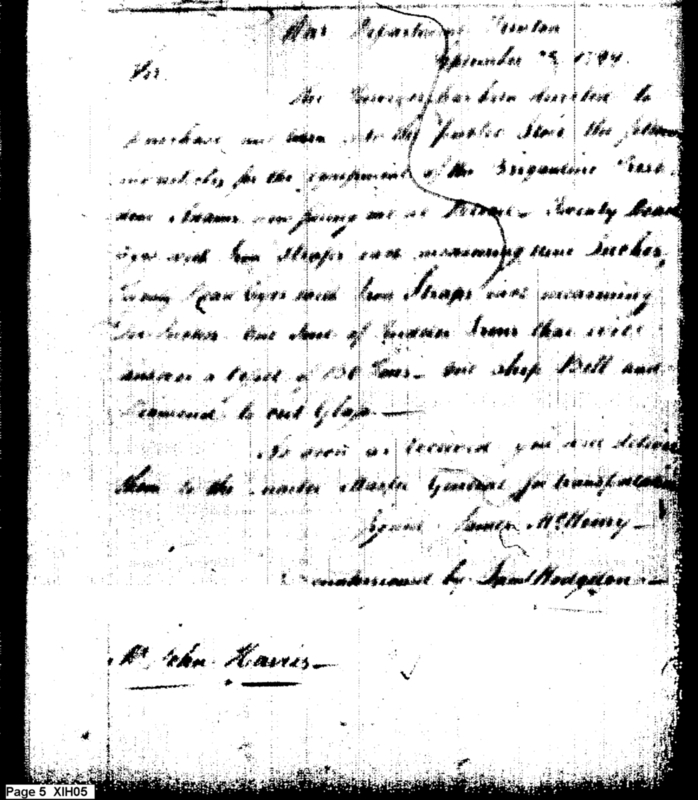 War Department Trenton
September 1794.
Sir
The Purveyor has been directed to
purchase and turn into the Public Store the
articles for the equipment of the Brigantine
Adams now at Twenty Dead
Eyes with Iron Straps each measuring nine Inches,
Twenty Dead Eyes with Iron Straps each measuring
Inches One of Irons that will
answer a Vessel of 130 Tons – One Ship Bell and
Diamond to cut Glass —
As soon as received you will deliver
them to the Quarter Master General for transportation
Signed James McHenry –
countersigned by Saml Hodgdon –
Mr. John Harris –
Page 5 XIH05